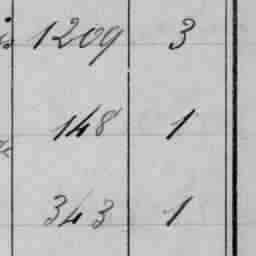 1209 3
148 1
343 1